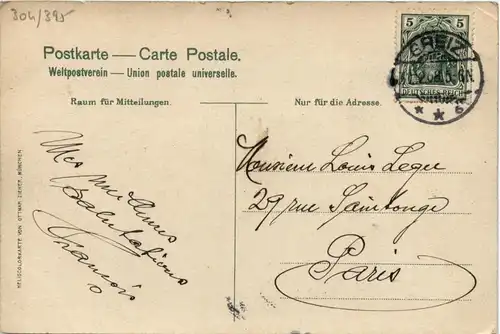 304/395
Postkarte — Carte Postale.
Weltpostverein — Union postale universelle.
Raum für Mitteilungen.
Nur für die Adresse.
5 5
DEUTSCHES REICH
GREIZ
* * b
Mes
Salutations
François
Monsieur Louis Leger
29 rue Saintonge
Paris
HELIOCOLORKARTE VON OTTMAR ZIEHER, MÜNCHEN